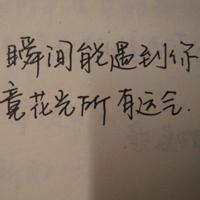 瞬间能遇到你
竟花光所有运气.